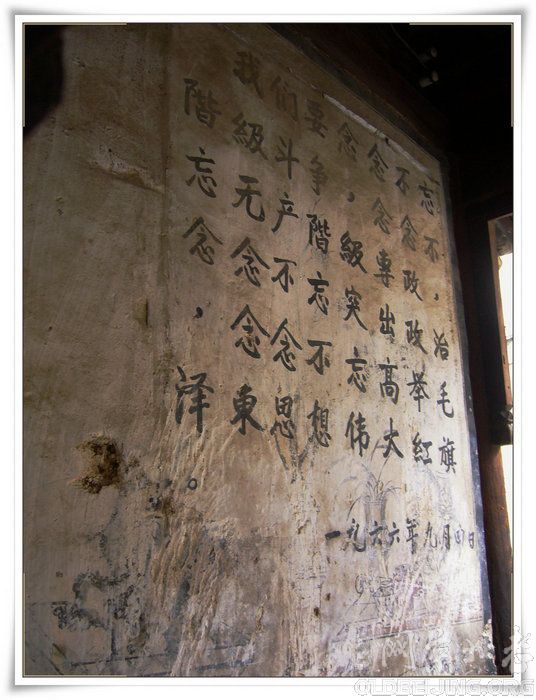 我们要念念不忘
階級斗争，念念不
忘无产階級專政，
念念不忘突出政治
，念念不忘高举毛
泽東思想伟大紅旗
。
一九六六年九月四日
OLDBEIJING.ORG